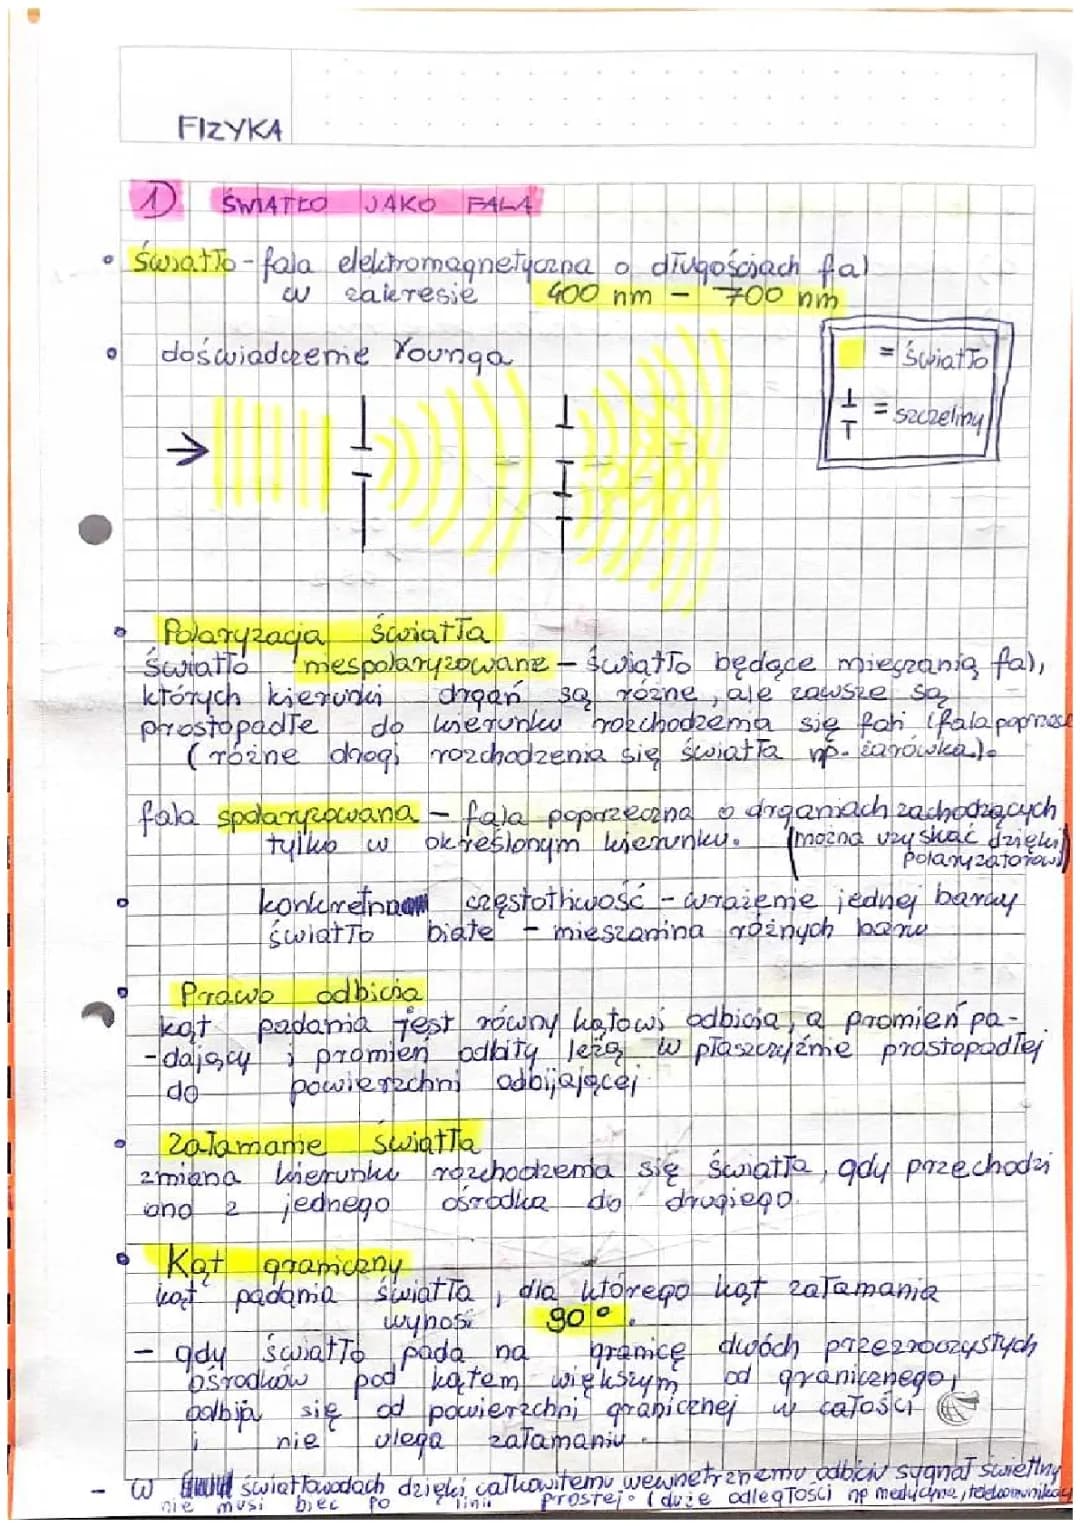 FIZYKA
1) ŚWIATŁO JAKO FALA
• Światło - fala elektromagnetyczna o długościach fal
w zakresie 400 nm - 700 nm
• doświadczenie Younga
= światło
= szczeliny
• Polaryzacja światła
światło niespolaryzowane - światło będące mieszanią fal,
których kierunki drgań są różne, ale zawsze są
prostopadłe do kierunku rozchodzenia się fali (fala poprzecz
(różne drogi rozchodzenia się światła np. żarówka).
fala spolaryzowana - fala poprzeczna o drganiach zachodzących
tylko w określonym kierunku. (można uzyskać dzięki
polaryzatorowi)
• konkretna częstotliwość - wrażenie jednej barwy
światło białe - mieszanina różnych barw
• Prawo odbicia
kąt padania jest równy kątowi odbicia, a promień pa-
-dający i promień odbity leżą w płaszczyźnie prostopadłej
do powierzchni odbijającej
• Załamanie światła
zmiana kierunku rozchodzenia się światła, gdy przechodzi
ono z jednego ośrodka do drugiego.
• Kąt graniczny
kąt padania światła, dla którego kąt załamania
wynosi 90°.
- gdy światło pada na granicę dwóch przezroczystych
ośrodków pod kątem większym od granicznego,
odbija się od powierzchni granicznej w całości
i nie ulega załamaniu.
- w światłowodach dzięki całkowitemu wewnętrznemu odbiciu sygnał świetlny
nie musi biec po linii prostej. (duże odległości np medycyna, telekomunikacj